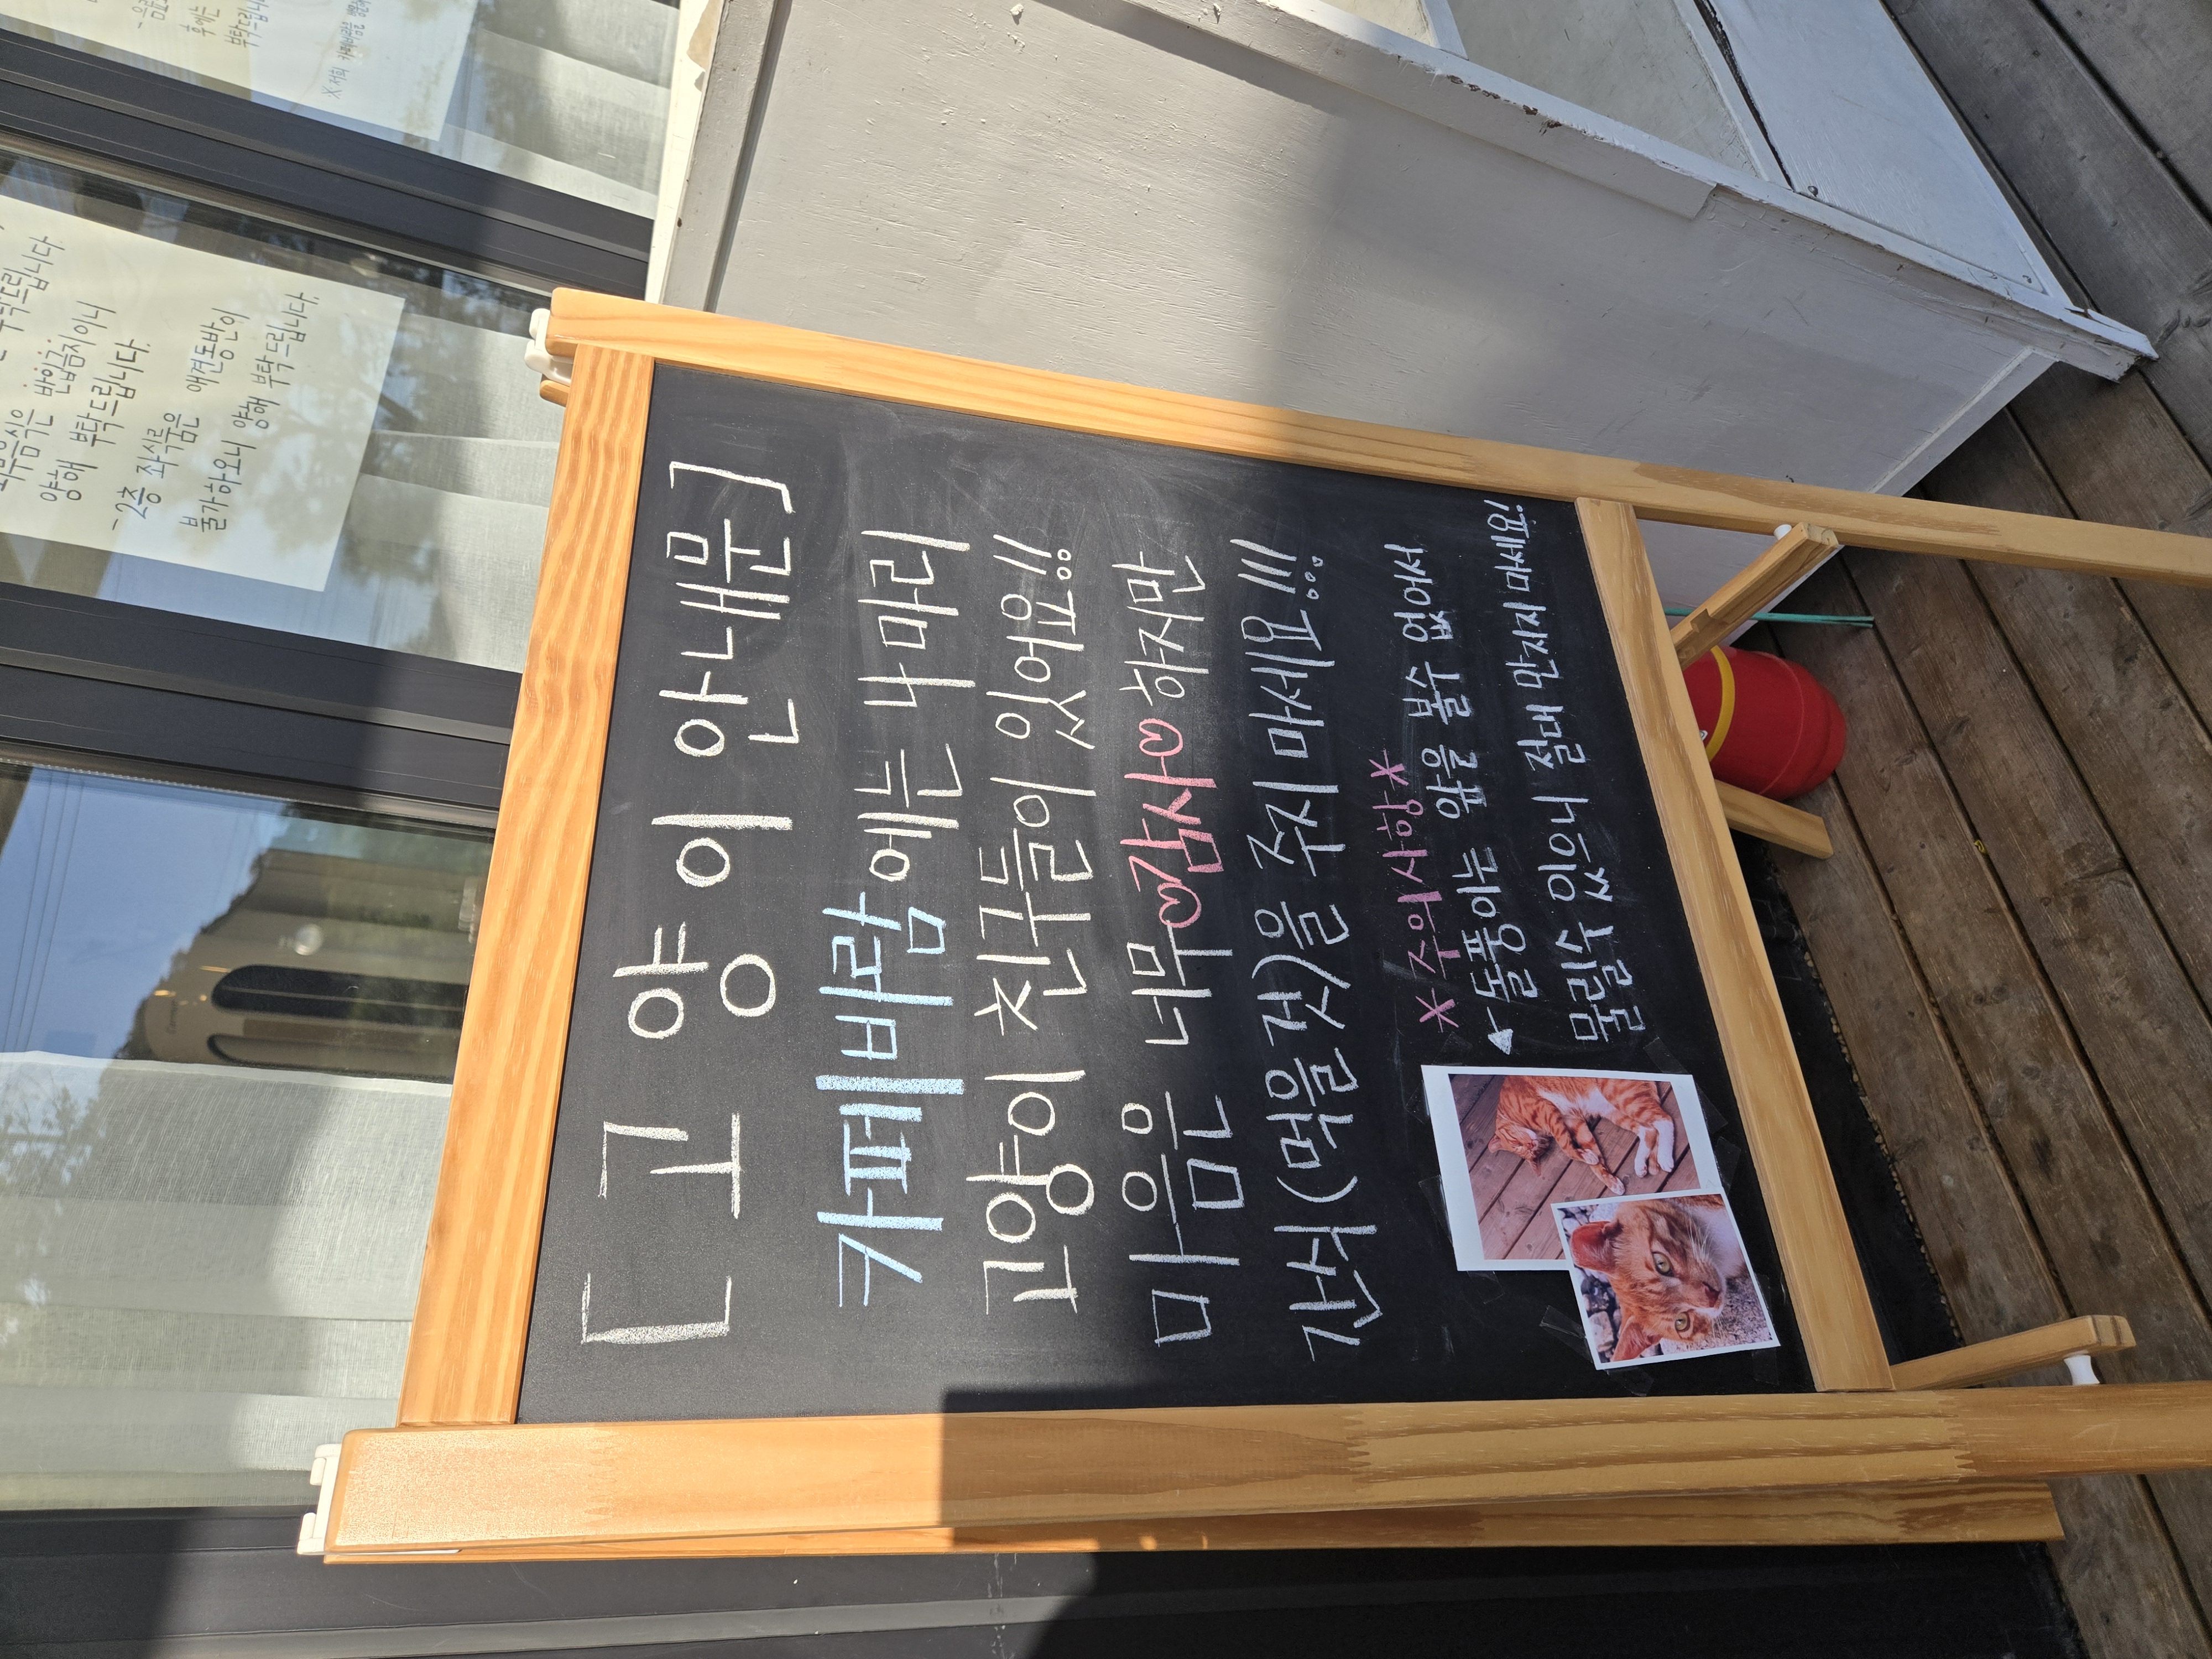 [고양이 안내문]
카페바람에는 너 마리
고양이 친구들이 있어요!!
마음은 너무♡감사♡하지만
간식(먹을 것)을 주지 마세요!!!
*주의사항*
돌풍이는 앞을 볼수 없어서
물릴수 있으니 절대 만지지 마세요!
부탁드립니다
반입금지이니
양해 부탁드립니다.
-2층 좌석룸은 애견동반이
불가하오니 양해 부탁드립니다.
후에는
부탁드립니